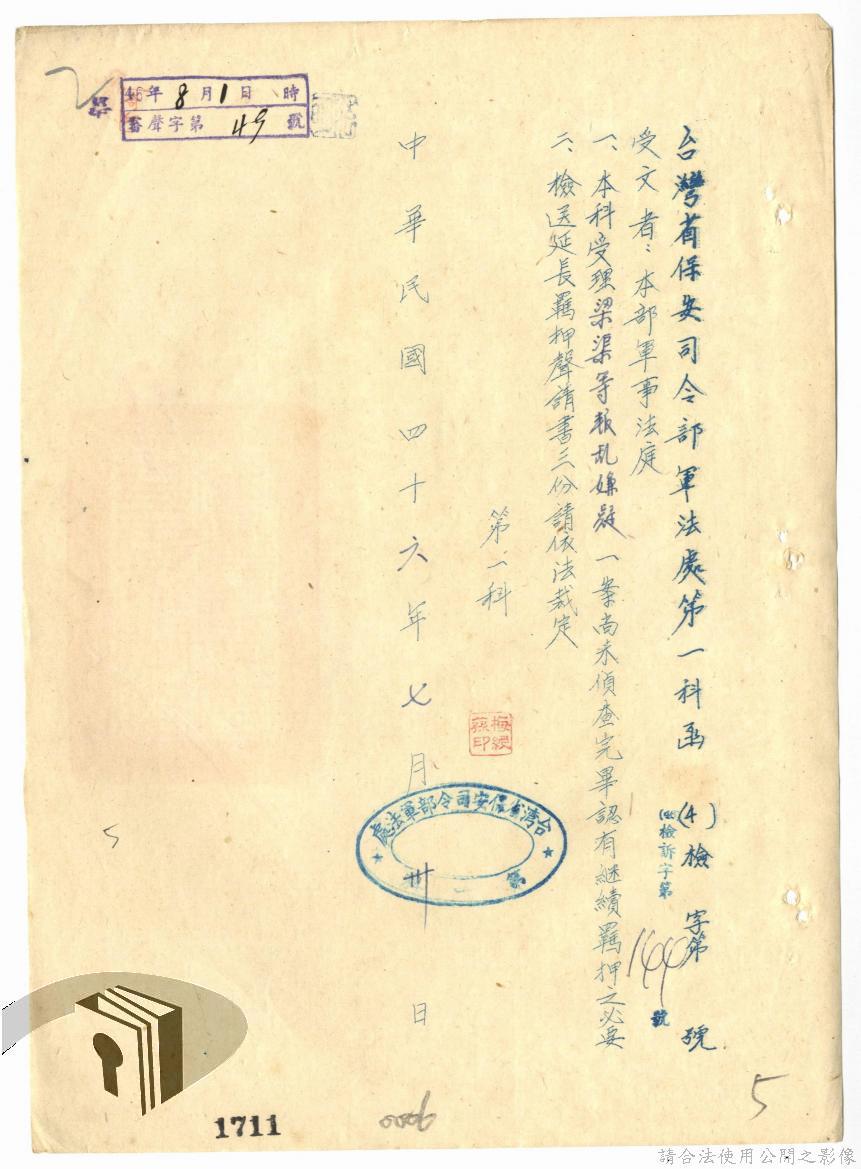 台灣省保安司令部軍法處第一科函 (4)檢 字第 號
(46)檢訴字第 144 號
受文者：本部軍事法庭
一、本科受理梁渠等叛乱嫌疑一案尚未偵查完畢認有継續羈押之必要
二、檢送延長羈押聲請書三份請依法裁定
第一科
中華民國四十六年七月卅日
台湾省保安司令部軍法處
第一
46年8月1日 時
審聲字第 49 號
5
5
1711
0006
請合法使用公開之影像